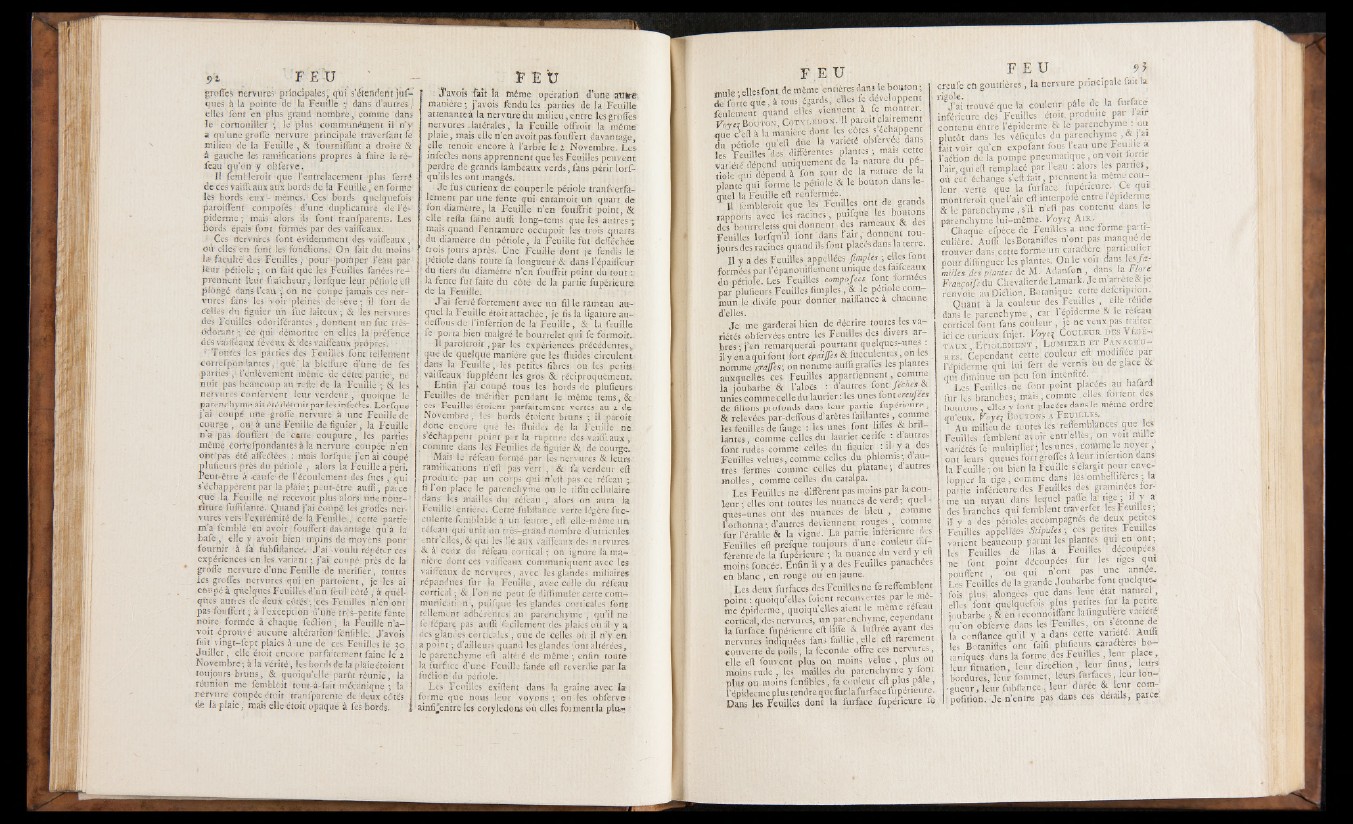 92 F E U
grosses nervures principales, qui s'étendent jus-
ques à la pointe de la Feuille ; dans d'autres,
elles sont en plus grand nombre, comme dans
le cornouiller ; le plus communément il n'y
a qu'une grosse nervure principale traversant le
milieu de la Feuille, & fournissant à droite &
à gauche les ramifications propres à faire le ré-
seau qu'on y observe.
Il sembleroit que l'entrelacement plus serré
de ces vaisseaux aux bords de la Feuille, en forme
les bords eux-mêmes. Ces bords quelquefois
paroissent composés d'une duplicature de l'é-
piderme ; mais alors ils sont transparens. Les
bords épais sont formés par des vaisseaux.
Ces nervures sont évidemment des vaisseaux,
où elles en font les fonctions. On sait du moins
la faculté des Feuilles, pour pomper l'eau par
leur pétiole ; on sait que les Feuilles fanées re-
prennent leur fraîcheur, lorsque leur pétiole est
plongé dans l'eau ; on ne coupe jamais ces ner-
vures sans les voir pleines de sève ; il sort de
celles du figuier un suc laiteux ; & les nervures
des Feuilles odoriférantes, donnent un suc très-
odorant ; ce qui démontre en elles la présence
des vaisseaux séveux & des vaisseaux propres.
Toutes les parties des Feuilles sont tellement
correspondantes, que la blessure d'une de ses
parties, l'enlèvement même de cette partie, ne
nuit pas beaucoup au reste de la Feuille ; & les
nervures conservent leur verdeur, quoique le
parenchyme ait été détruit par les insectes. Lorsque
j'ai coupé une grosse nervure à une Feuille de
courge, ou à une Feuille de figuier, la Feuille
n'a pas souffert de cette coupure, les parties
même correspondantes à la nervure coupée n'en
ont pas été affectées : mais lorsque j'en ai coupé
plusieurs près du pétiole, alors la Feuille a péri.
Peut-être à cause de l'écoulement des sucs, qui
s'échappèrent par la plaie ; peut-être aussi, parce
que la Feuille ne recevoit plus alors une nour-
riture suffisante. Quand j'ai coupé les grosses ner-
vures vers l'extrémité de la Feuille, cette partie
m'a semblé en avoir souffert davantage qu'à sa
base, elle y avoit bien moins de moyens pour
fournir à sa subsistance. J'ai voulu répéter ces
expériences en les variant ; j'ai coupé près de la
grosse nervure d'une Feuille de merisier, toutes
les grosses nervures qui en partoient, je les ai
coupé à quelques Feuilles d'un seul côté, à quel-
ques autres de deux côtés ; ces Feuilles n'en ont
pas souffert ; à l'exception d'une très-petite fente
noire formée à chaque section, la Feuille n'a-
voit éprouvé aucune altération sensible. J'avois
fait vingt-sept plaies à une de ces Feuilles le 30
Juillet, elle étoit encore parfaitement faine le 2
Novembre ; à la vérité, les bords de la plaie étoient
toujours bruns, & quoiqu'elle parût réunie, la
réunion me sembloit tout-à-fait mécanique ; la
nervure coupée étoit transparente de deux côtés
de la plaie, mais elle étoit opaque à ses bords.
F E U
J'avois fait la même opération d'une autre
manière ; j'avois fendu les parties de la Feuille
attenante à la nervure du milieu, entre les grosses
nervures latérales, la Feuille offroit la même
plaie, mais elle n'en avoit pas souffert davantage,
elle tenoit encore à l'arbre le 2 Novembre. Les
insectes nous apprennent que les Feuilles peuvent
perdre de grands lambeaux verds, sans périr lors-
qu'ils les ont mangés.
Je fus curieux de couper le pétiole transversa-
lement par une fente qui entamoit un quart de
son diamètre, la Feuille n'en souffrit point, &
elle resta saine aussi long-tems que les autres ;
mais quand l'entamure occupoit les trois quarts
du diamètre du pétiole, la Feuille fut desséchée
trois jours après. Une Feuille dont je fendis le
pétiole dans toute sa longueur & dans l'épaisseur
du tiers du diamètre n'en souffrit point du tout :
la fente fut faite du côté de la partie supérieure
de la Feuille.
J'ai serré fortement avec un fil le rameau au-
quel la Feuille étoit attachée, je fis la ligature au-
dessous de l'insertion de la Feuille, & la feuille
se porta bien malgré le bourrelet qui se formoit.
Il paroîtroit, par les expériences précédentes,
que de quelque manière que les fluides circulent
dans la Feuille, les petites fibres ou les petits
vaisseaux suppléent les gros & réciproquement.
Enfin j'ai coupé tous les bords de plusieurs
Feuilles de merisier pendant le même tems, &
ces Feuilles étoient parfaitement vertes au 2 de
Novembre, les bords étoient bruns ; il paroît
donc encore que les fluides de la Feuille ne
s'échappent point par la rupture des vaisseaux,
comme dans les Feuilles de figuier & de courge.
Mais le réseau formé par les nervures & leurs
ramifications n'est pas vert, & sa verdeur est
produite par un corps qui n'est pas ce réseau ;
si l'on place le parenchyme ou le tissu cellulaire
dans les mailles du réseau, alors on aura la
Feuille entière. Cette substance verte légère suc-
culente semblable à un feutre, est elle-même un
réseau qui unit un très-grand nombre d'utricules
entr'elles, & qui les lie aux vaisseaux des nervures
& à ceux du réseau cortical ; on ignore la ma-
nière dont ces vaisseaux communiquent avec les
vaisseaux de nervures, avec les glandes miliaires
répandues sur la Feuille, avec celle du réseau
cortical ; & l'on ne peut se dissimuler cette com-
munication, puisque les glandes corticales sont
tellement adhérentes au parenchyme, qu'il ne
se sépare pas aussi facilement des places où il y a
des glandes corticales, que de celles où il n'y en
a point ; d'ailleurs quand les glandes sont altérées,
le parenchyme est altéré de même ; enfin toute
la surface d'une Feuille fanée est reverdie par la
suction du pétiole.
Les Feuilles existent dans la graine avec la
forme que nous leur voyons ; on les observe
ainsi entre les cotyledons où elles forment la plu-
F E U
mule ; elles sont de même entières dans le bouton ;
de sorte que, à tous égards, elles se développent
seulement quand elles viennent à se montrer.
Voyez BOUTON, COTYLEDON. Il paroît clairement
que c'est à la manière dont les côtes s'échappent
du pétiole qu'est dûe la variété observée dans
les Feuilles des différentes plantes ; mais cette
variété dépend uniquement de la nature du pé-
tiole qui dépend à son tout de la nature de la
plante qui forme le pétiole & le bouton dans le-
quel la Feuille est renfermée.
Il sembleroit que les Feuilles ont de grands
rapports avec les racines, puisque les boutons
des bourrelets qui donnent des rameaux & des
Feuilles lorsqu'il sont dans l'air, donnent tou-
jours des racines quand ils sont placés dans la terre.
Il y a des Feuilles appellées simples ; elles sont
formées par l'épanouissement unique des faisceaux
du pétiole. Les Feuilles composées sont formées
par plusieurs Feuilles simples, & le pétiole com-
mun se divise pour donner naissance à chacune
d'elles.
Je me garderai bien de décrire toutes les va-
riétés observées entre les Feuilles des divers ar-
bres ; j'en remarquerai pourtant quelques-unes :
il y en a qui sont fort épaisses & succulentes, on les
nomme grasses ; on nomme aussi grasses les plantes
auxquelles ces Feuilles appartiennent, comme
la joubarbe & l'aloës : d'autres sont sèches &
unies comme celle du laurier : les unes sont creusées
de sillons profonds dans leur partie supérieure,
& relevées par-dessous d'arêtes saillantes, comme
les feuilles de sauge : les unes sont lisses & bril-
lantes, comme celles du laurier cerise : d'autres
sont rudes comme celles du figuier : il y a des
Feuilles velues, comme celles du phlomis ; d'au-
tres fermes comme celles du platane ; d'autres
molles, comme celles du catalpa.
Les Feuilles ne diffèrent pas moins par la cou-
leur ; elles ont toutes les nuances de verds ; quel-
ques-unes ont des nuances de bleu, comme
l'ochonna ; d'autres deviennent rouges, comme
sur l'érable & la vigne. La partie inférieure des
Feuilles est presque toujours d'une couleur dif-
férente de la supérieure ; la nuance du verd y est
moins foncée. Enfin il y a des Feuilles panachées
en blanc, en rouge ou en jaune.
Les deux surfaces des Feuilles ne se ressemblent
point : quoiqu'elles soient recouvertes par le mê-
me épiderme, quoiqu'elles aient le même réseau
cortical, des nervures, un parenchyme, cependant
la surface supérieure est lisse & lustrée ayant des
nervures indiquées sans saillie, elle est rarement
couverte de poils, la seconde offre ces nervures,
elle est souvent plus ou moins velue, plus ou
moins rude, les mailles du parenchyme y sont
plus ou moins sensibles, sa couleur est plus pâle,
l'épiderme plus tendre que sur la surface supérieure.
Dans les Feuilles dont la surface supérieure se
F E U 93
creuse en gouttières, la nervure principale fait la
rigole.
J'ai trouvé que la couleur pâle de la surface
inférieure des Feuilles étoit produite par l'air
contenu entre l'épiderme & le parenchyme : ou
plutôt dans les vésicules du parenchyme, & j'ai
fait voir qu'en exposant sous l'eau une Feuille à
l'action de la pompe pneumatique, on voit sortir
l'air, qui est remplacé par l'eau : alors les parties,
où cet échange s'est fait, prennent la même cou-
leur verte que la surface supérieure. Ce qui
montreroit que l'air est interposé entre l'épiderme
& le parenchyme, s'il n'est pas contenu dans le
parenchyme lui-même. Voyez AIR.
Chaque espèce de Feuilles a une forme parti-
culière. Aussi les Botanistes n'ont pas manqué de
trouver dans cette forme un caractère particulier
pour distinguer les plantes. On le voit dans les fa-
milles des plantes de M. Adanson, dans la Flore
Françoise du Chevalier de Lamark. Je m'arrête & je
renvoie au Diction. Botanique cette description.
Quant à la couleur des Feuilles, elle réside
dans le parenchyme, car l'épiderme & le réseau
cortical sont sans couleur, je ne veux pas traiter
ici ce curieux sujet. Voyez COULEUR DES VÉGÉ-
TAUX, ETIOLEMENT, LUMIERE ET PANACHU-
RES. Cependant cette couleur est modifiée par
l'épiderme qui lui sert de vernis ou de glace &
qui diminue un peu son intensité.
Les Feuilles ne sont point placées au hasard
sur les branches ; mais, comme elles sortent des
boutons, elles y sont placées dans le même ordre
qu'eux. Voyez BOUTONS A FEUILLES.
Au milieu de toutes les ressemblances que les
Feuilles semblent avoir entr'elles, on voit mille
variétés se multiplier ; les unes, comme le noyer,
ont leurs queues fort grosses à leur insertion dans
la Feuille ; ou bien la Feuille s'élargit pour enve-
lopper la tige, comme dans les ombellifères ; la
partie inférieure des Feuilles des graminées for-
me un tuyau dans lequel passe la tige ; il y a
des branches qui semblent traverser les Feuilles ;
il y a des pétioles accompagnés de deux petites
Feuilles appellées Stipules ; ces petites Feuilles
varient beaucoup parmi les plantes qui en ont ;
les Feuilles de lilas à Feuilles découpées
ne sont point découpées sur les tiges qui
poussent, ou qui n'ont pas une année.
Les Feuilles de la grande Joubarbe sont quelque-
fois plus alongées que dans leur état naturel,
elles sont quelquefois plus petites sur la petite
joubarbe ; & en reconnoissant la singulière variété
qu'on observe dans les Feuilles, on s'étonne de
la constance qu'il y a dans cette variété. Aussi
les Botanistes ont saisi plusieurs caractères bo-
taniques dans la forme des Feuilles, leur place,
leur situation, leur direction, leur sinus, leurs
bordures, leur sommet, leurs surfaces, leur lon-
gueur, leur substance, leur durée & leur com-
position. Je n'entre pas dans ces détails, parce